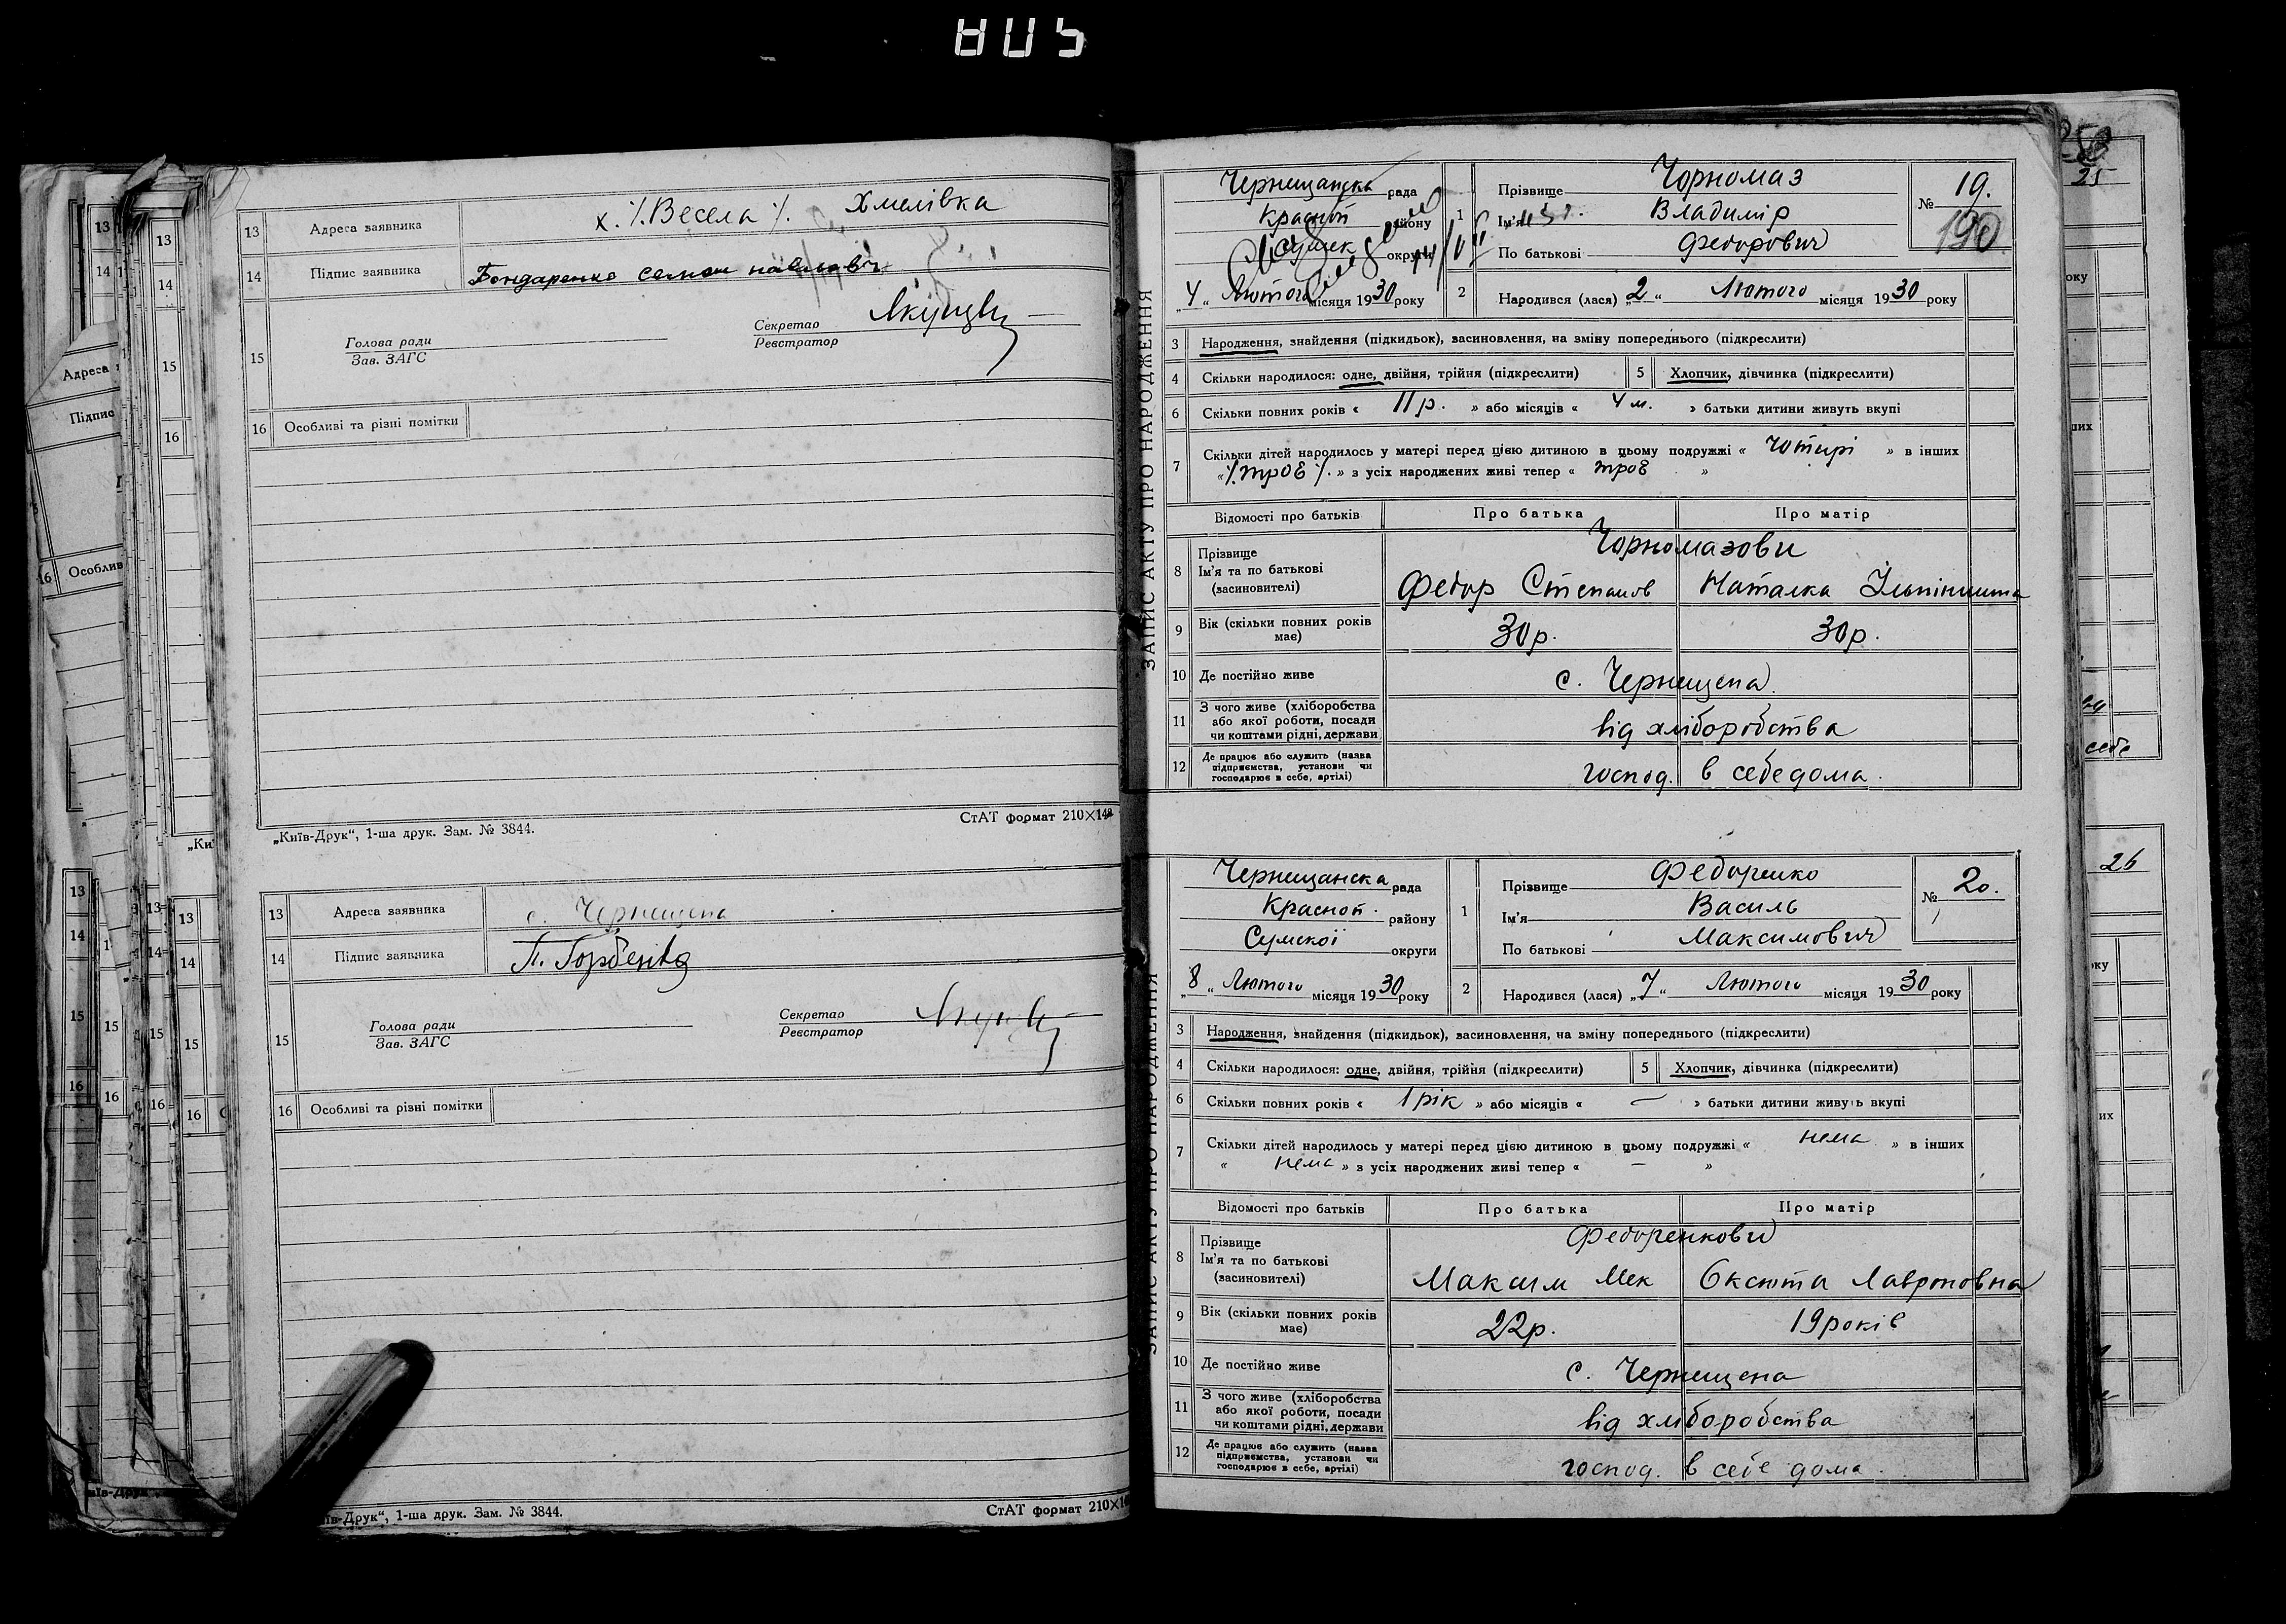 805
13 Адреса заявника х. ⁒ Весела ⁒. Хмелівка
14 Підпис заявника Бондаренко Семен Павлович
15 Голова ради
Зав. ЗАГС
Секретар
Реєстратор
16 Особливі та різні помітки
„Київ-Друк“, 1-ша друк. Зам. № 3844. СтАТ формат 210×148
13 Адреса заявника с. Чернещена
14 Підпис заявника П. Горбенко
15 Голова ради
Зав. ЗАГС
Секретар
Реєстратор
16 Особливі та різні помітки
їв-Друк“, 1-ша друк. Зам. № 3844. СтАТ формат 210×14
ЗАПИС АКТУ ПРО НАРОДЖЕННЯ
Чернещанска рада
Красноп району
округи
4 „ Лютого місяця 1930 року
1 Прізвище Чорномаз
Ім'я Владимір
По батькові Федорович
№ 19.
190
2 Народився (лася) „2“ Лютого місяця 1930 року
3 Народження, знайдення (підкидьок), засиновлення, на зміну попереднього (підкреслити)
4 Скільки народилося: одне, двійня, трійня (підкреслити) 5 Хлопчик, дівчинка (підкреслити)
6 Скільки повних років « 11 р. » або місяців « 4 м. » батьки дитини живуть вкупі
7 Скільки дітей народилось у матері перед цією дитиною в цьому подружжі « Чотирі » в інших
« ⁒ троє ⁒. » з усіх народжених живі тепер « троє »
Відомості про батьків Про батька Про матір
8 Прізвище Чорномазови
Ім'я та по батькові Федор Степанов Наталка
(засиновителі)
9 Вік (скільки повних років має) 30р. 30р.
10 Де постійно живе с. Чернещена.
11 З чого живе (хліборобства або якої роботи, посади чи коштами рідні, держави від хліборобства
12 Де працює або служить (назва підприємства, установи чи господарює в себе, артілі) господ. в себе дома.
ЗАПИС АКТУ ПРО НАРОДЖЕННЯ
Чернещанска рада
Красноп. району
Сумскої округи
„8“ Лютого місяця 1930 року
1 Прізвище Федоренко
Ім'я Василь
По батькові Максимович
№ 20.
2 Народився (лася) „7“ Лютого місяця 1930 року
3 Народження, знайдення (підкидьок), засиновлення, на зміну попереднього (підкреслити)
4 Скільки народилося: одне, двійня, трійня (підкреслити) 5 Хлопчик, дівчинка (підкреслити)
6 Скільки повних років « 1 рік » або місяців « — » батьки дитини живуть вкупі
7 Скільки дітей народилось у матері перед цією дитиною в цьому подружжі « нема » в інших
« нема » з усіх народжених живі тепер « — »
Відомості про батьків Про батька Про матір
8 Прізвище Федоренкови
Ім'я та по батькові Максим Мек Оксюта Лавроновна
(засиновителі)
9 Вік (скільки повних років має) 22р. 19 років
10 Де постійно живе с. Чернещена
11 З чого живе (хліборобства або якої роботи, посади чи коштами рідні, держави від хліборобства
12 Де працює або служить (назва підприємства, установи чи господарює в себе, артілі) господ. в себе дома.